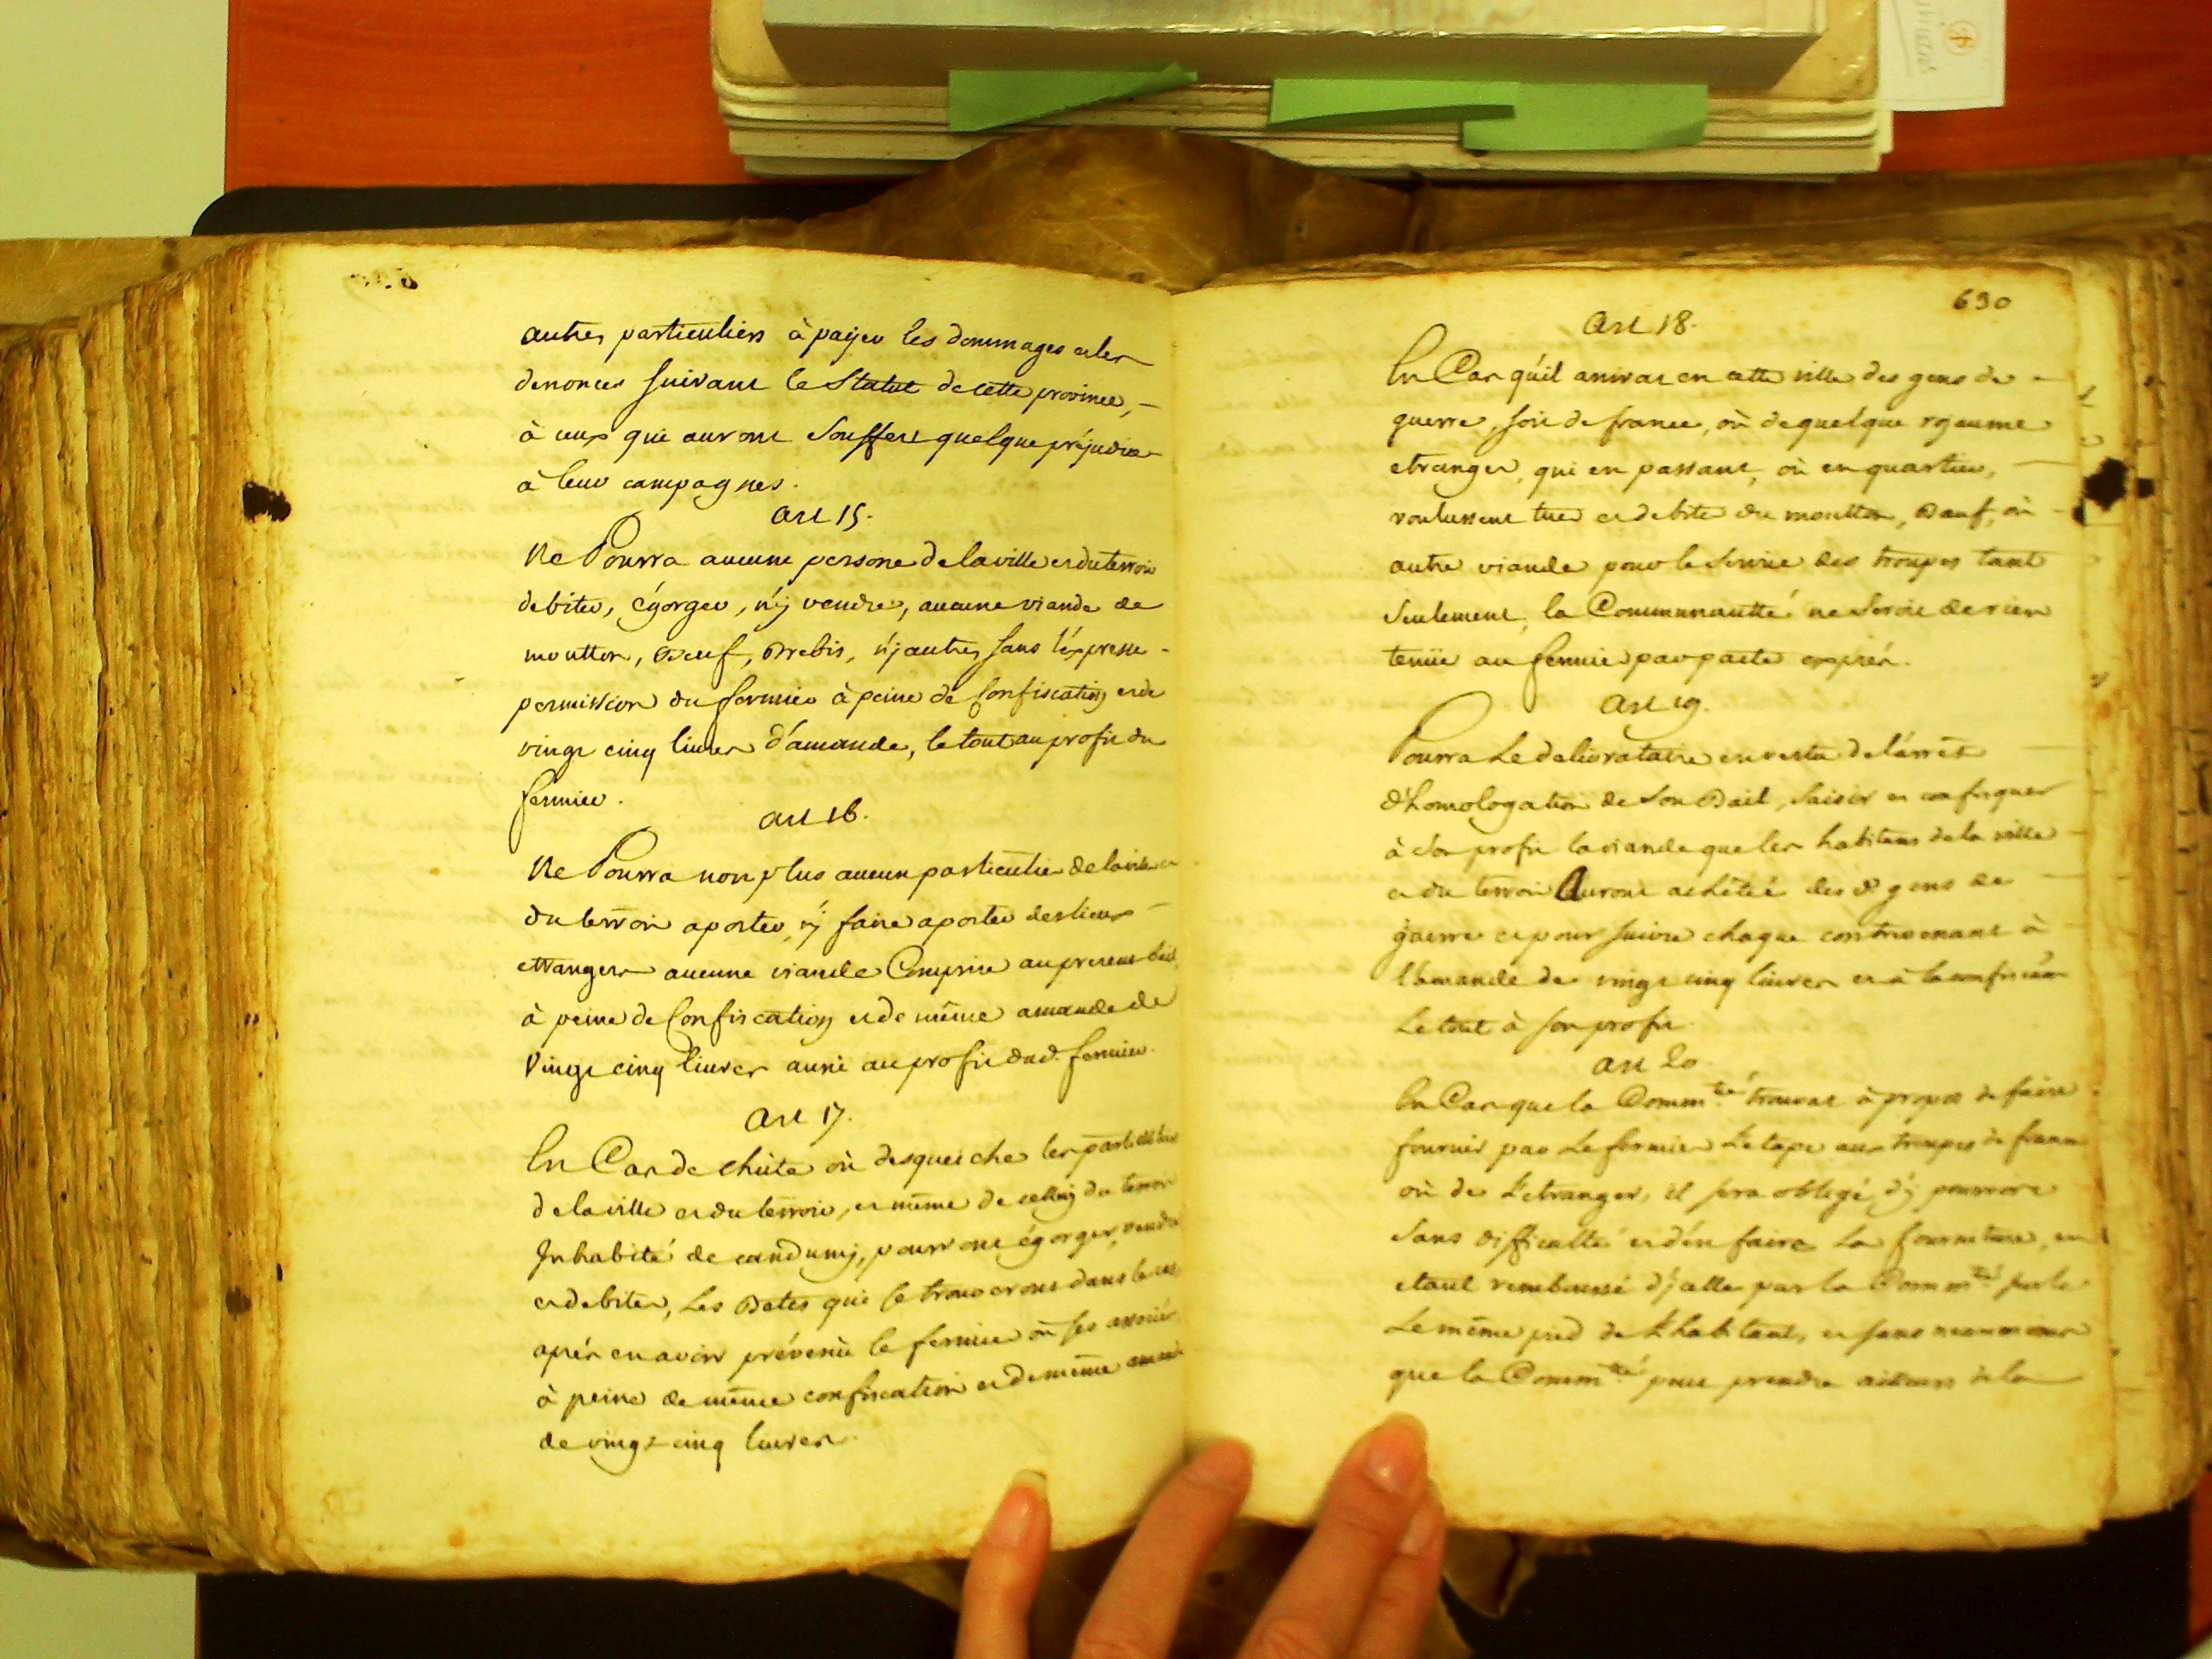 autres particuliers à payer les dommages et les
denonces suivant le Statut de cette province,
à ceux qui auront Souffert quelque préjudice
à leur campagnes.
art 15.
Ne Pourra aucune persone de la ville et du terroir
debiter, égorger, n'y vendre, aucune viande de
moutton, Bœuf, Brebis, n'j autres sans l'éxpresse
permission du fermier à peine de Confiscation et de
vingt cinq livres d'amande, le tout au profit du
fermier.
art 16.
Ne Pourra non plus aucun particulier de la ville et
du terroir aporter, n'y faire aporter des lieux
ettrangers aucune viande Comprise au present bail,
à peine de Confiscation et de même amande de
Vingt cinq livres aussi au profit dud. fermier.
Art 17.
En Cas de chûte où desqueiche les particuliers
de la ville et du terroir, et même de celluy du terroir
Inhabité de candumy, pourront égorger, vendre
et debiter, Les Betes qui se trouveront dans le cas
aprés en avoir prévenù le fermier où ses associés
à peine de même confiscation et de même amande
de vingt cinq livres.
630
Art 18.
En Cas qu'il arrivat en cette ville des gens de
guerre, soit de france, où de quelque royaume
etranger, qui en passant, où en quartier,
voulussent tuer et debiter du moutton, Bœuf, où
autre viande pour le Service des troupes tant
Seulement, la Communautté ne Seroit de rien
tenüe au fermier par pacte exprés.
Art 19.
Pourra Le delivrataire en vertu de l'arrét
d'homologation de Son Bail, Saisir et confisquer
à Son profit la viande que les habitans de la ville
et du terroir Auront achêtée des d. gens de
guerre et poursuivre chaque contrevenant à
l'amande de vingt cinq livres et à la confiscaon
Le tout à son profit.
art 20
En Cas que la Commté. trouvat à propos de faire
fournir par Le fermier L'etape aux troupes de france
où de L'etranger, il sera obligé d'y pourvoir
Sans difficulté et d'en faire La fourniture, en
etant remboursé d'jcelle par la Commté. sur le
Le même pied de L'habitant, et sans neanmoins
que la Commté. puisse prendre ailleurs de la